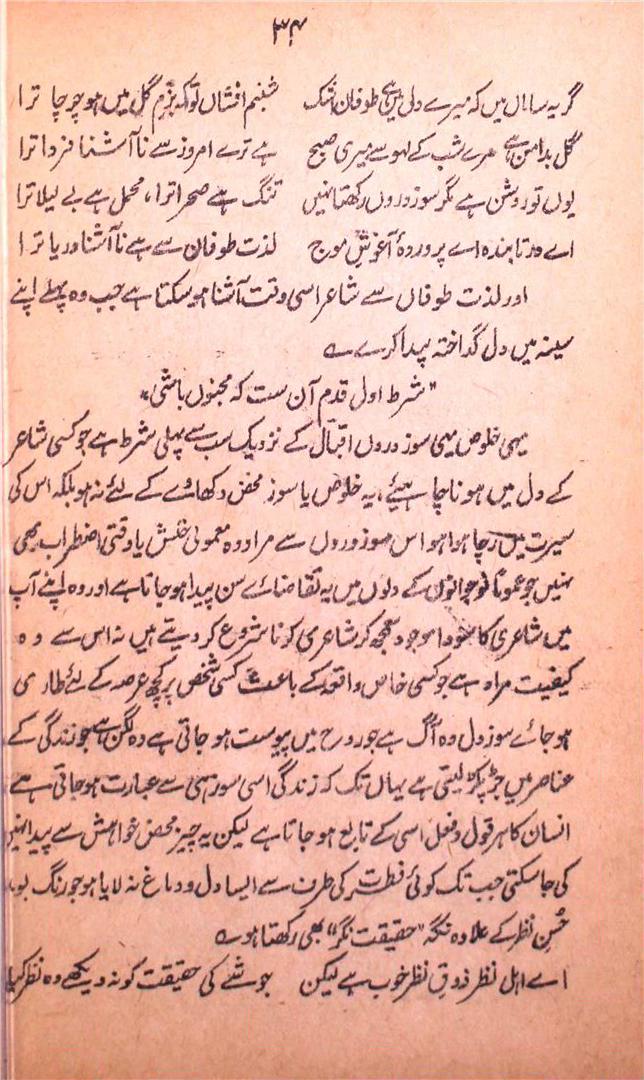 ۳۴
گریہ ساماں میں کہ میرے دل میں ہے طوفان اشک شبنم افشاں تو کہ بزم گل میں ہو چرچا ترا
گل بدامن ہے مرے شب کے لہو سے میری صبح ہے ترے امروز سے نا آشنا فردا ترا
یوں تو روشن ہے مگر سوز دروں رکھتا نہیں تنگ ہے صحرا ترا، محمل ہے بے لیلا ترا
اے در تابندہ اے پروردۂ آغوش موج لذت طوفان سے ہے نا آشنا دریا ترا
اور لذت طوفاں سے شاعر اسی وقت آشنا ہو سکتا ہے جب وہ پہلے اپنے
سینہ میں دل گداختہ پیدا کرے ؎
"شرط اول قدم آن ست کہ مجنوں باشی"
یہی خلوص یہی سوز دروں اقبال کے نزدیک سب سے پہلی شرط ہے جو کسی شاعر
کے دل میں ہونا چاہیئے، یہ خلوص یا سوز محض دکھاوے کے لئے نہ ہو بلکہ اس کی
سیرت میں رچا ہوا ہو اس سوز دروں سے مراد وہ معمولی خلش یا وقتی اضطراب بھی
نہیں جو عموماً نوجوانوں کے دلوں میں بہ تقاضائے سن پیدا ہو جاتا ہے اور وہ اپنے آپ
میں شاعری کا سودا موجود سمجھ کر شاعری کرنا شروع کر دیتے ہیں نہ اس سے وہ
کیفیت مراد ہے جو کسی خاص واقعہ کے باعث کسی شخص پر کچھ عرصہ کے لئے طاری
ہو جائے سوز دل وہ آگ ہے جو روح میں پیوست ہو جاتی ہے وہ لگن ہے جو زندگی کے
عناصر میں جڑ پکڑ لیتی ہے یہاں تک کہ زندگی اسی سوز ہی سے عبارت ہو جاتی ہے
انسان کا ہر قول و فعل اسی کے تابع ہو جاتا ہے لیکن یہ چیز محض خواہش سے پیدا نہیں
کی جا سکتی جب تک کوئی فطرت کی طرف سے ایسا دل و دماغ نہ لایا ہو جو رنگ بو
حُسنِ نظر کے علاوہ نگہ "حقیقت نگر" بھی رکھتا ہو ؎
اے اہل نظر ذوقِ نظر خوب ہے لیکن جو شے کی حقیقت کو نہ دیکھے وہ نظر کیا